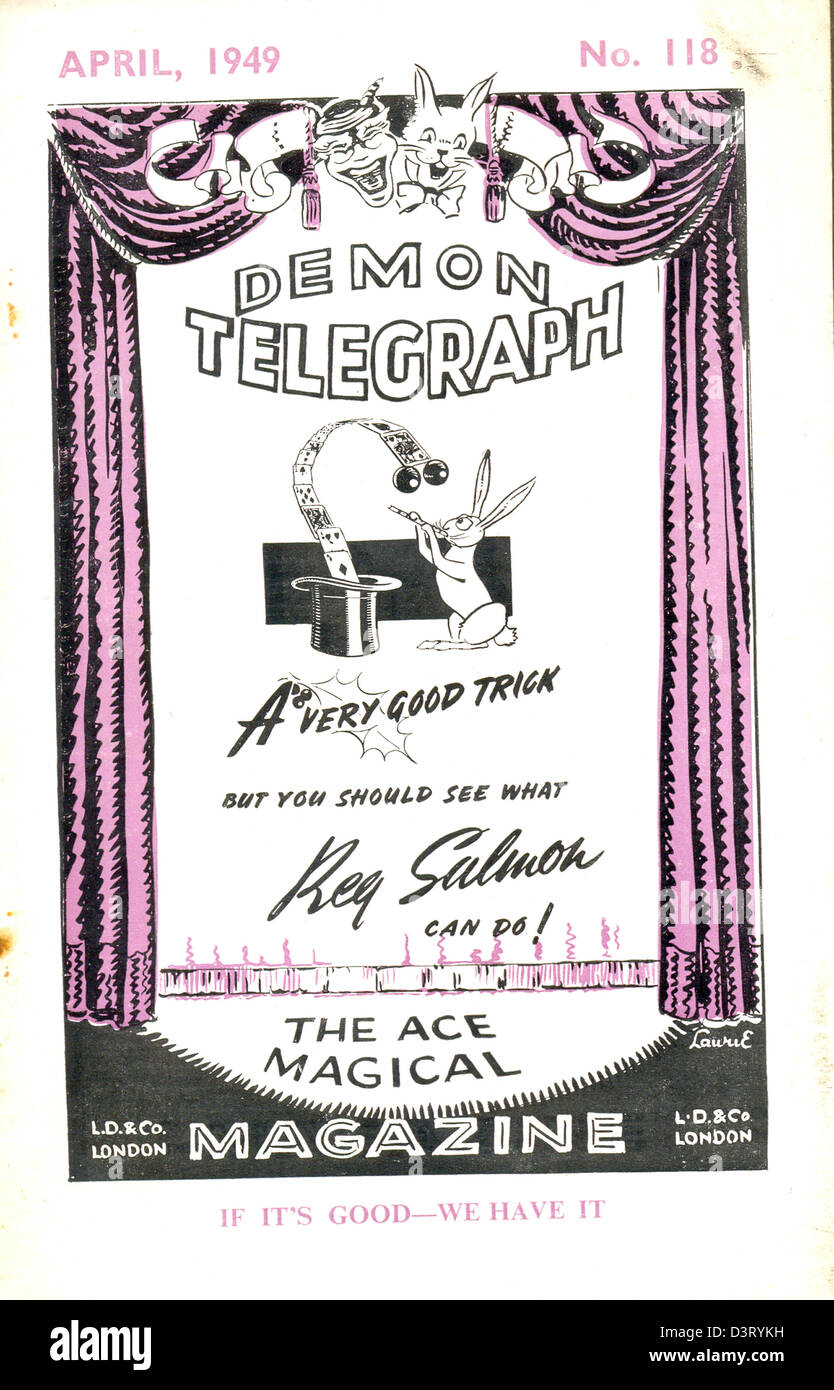 APRIL, 1949
No. 118
DEMON
TELEGRAPH
A VERY GOOD TRICK
BUT YOU SHOULD SEE WHAT
Reg Salmon
CAN DO!
THE ACE
MAGICAL
LaurIE
L.D.&Co.
LONDON
MAGAZINE
L.D.&Co
LONDON
IF IT'S GOOD—WE HAVE IT
alamy
Image ID: D3RYKH
www.alamy.com